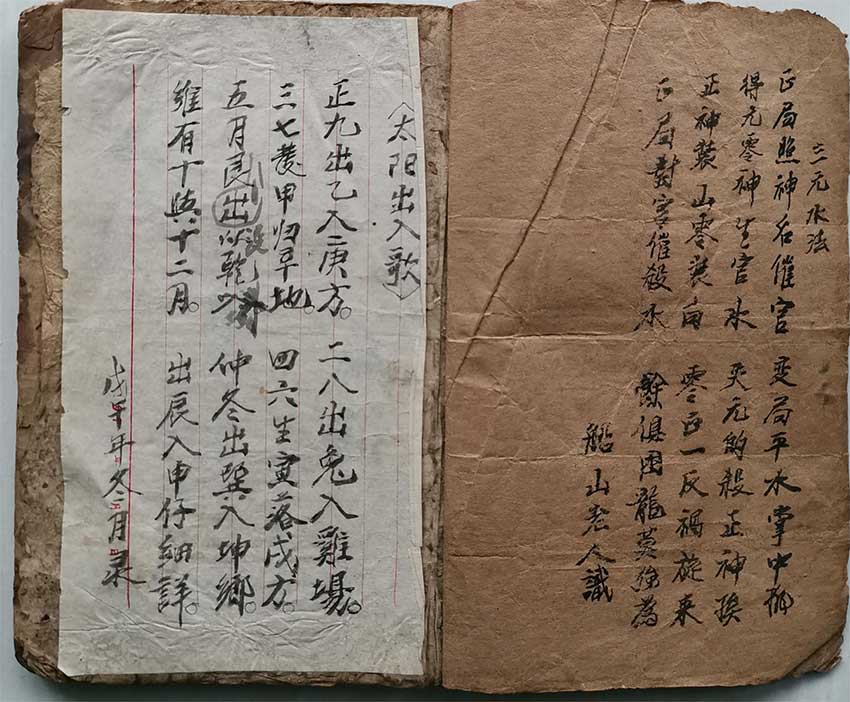 三元水法
正局照神名催官 变局平水掌中
得元零神生官水 失元的殺正神
正神裝山零裝向 零正一反禍旋来
正局對宮催殺水 俱困龍莫強為
船山老人識
〈太阳出入歌〉
正九出乙入庚方。二八出兔入雞場。
三七發甲归辛地。四六生寅落戌方。
五月艮出以乾 没 仲冬出巽入坤鄉。
維有十與十二月。出辰入申仔細詳。
戊午年冬月录